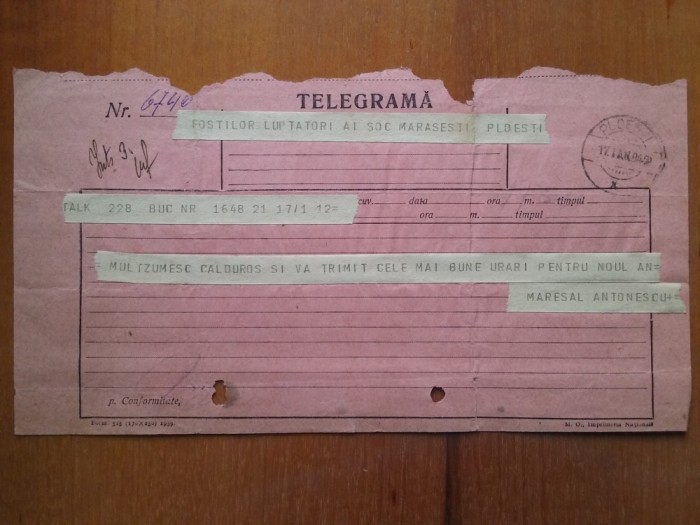 TELEGRAMĂ
Nr. 6740
FOSTILOR LUPTATORI AI SOC MARASESTI PLOESTI
TALK 228 BUC NR 1648 21 17/1 12=
cuv. data ora m. timpul
ora m. timpul
= MULTZUMESC CALDUROS SI VA TRIMIT CELE MAI BUNE URARI PENTRU NOUL AN=
MARESAL ANTONESCU+
p. Conformitate,
M. Of., Imprimeria Națională